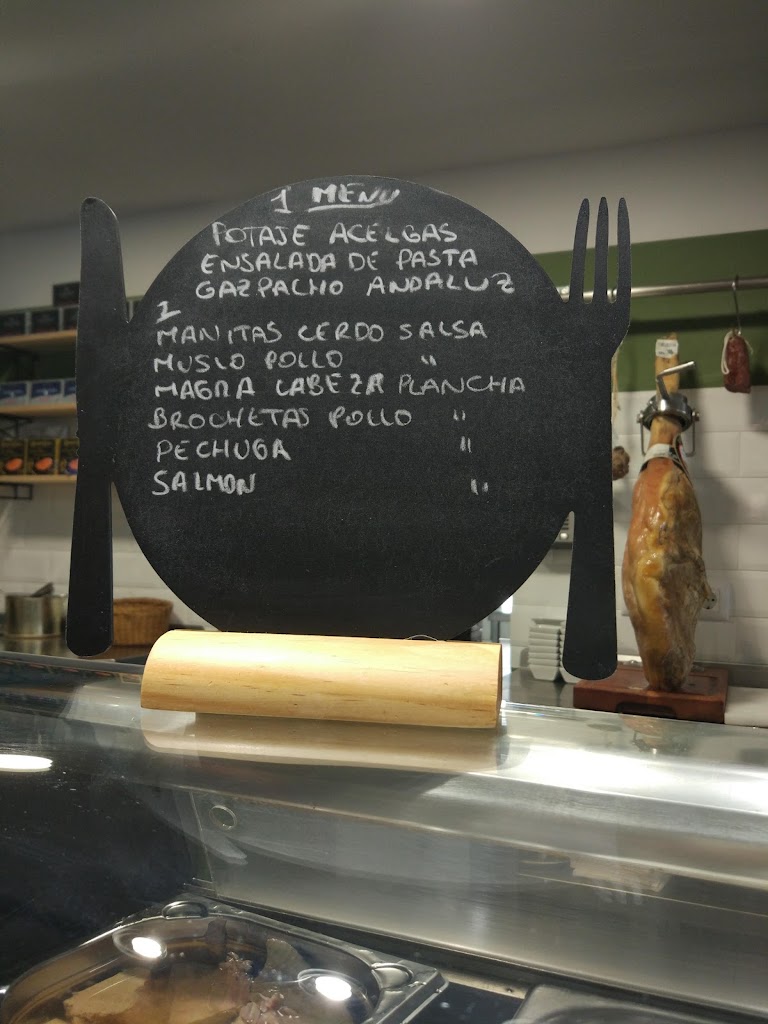 1 MENU
POTAJE ACELGAS
ENSALADA DE PASTA
GAZPACHO ANDALUZ
2
MANITAS CERDO SALSA
MUSLO POLLO "
MAGRA CABEZA PLANCHA
BROCHETAS POLLO "
PECHUGA "
SALMON "